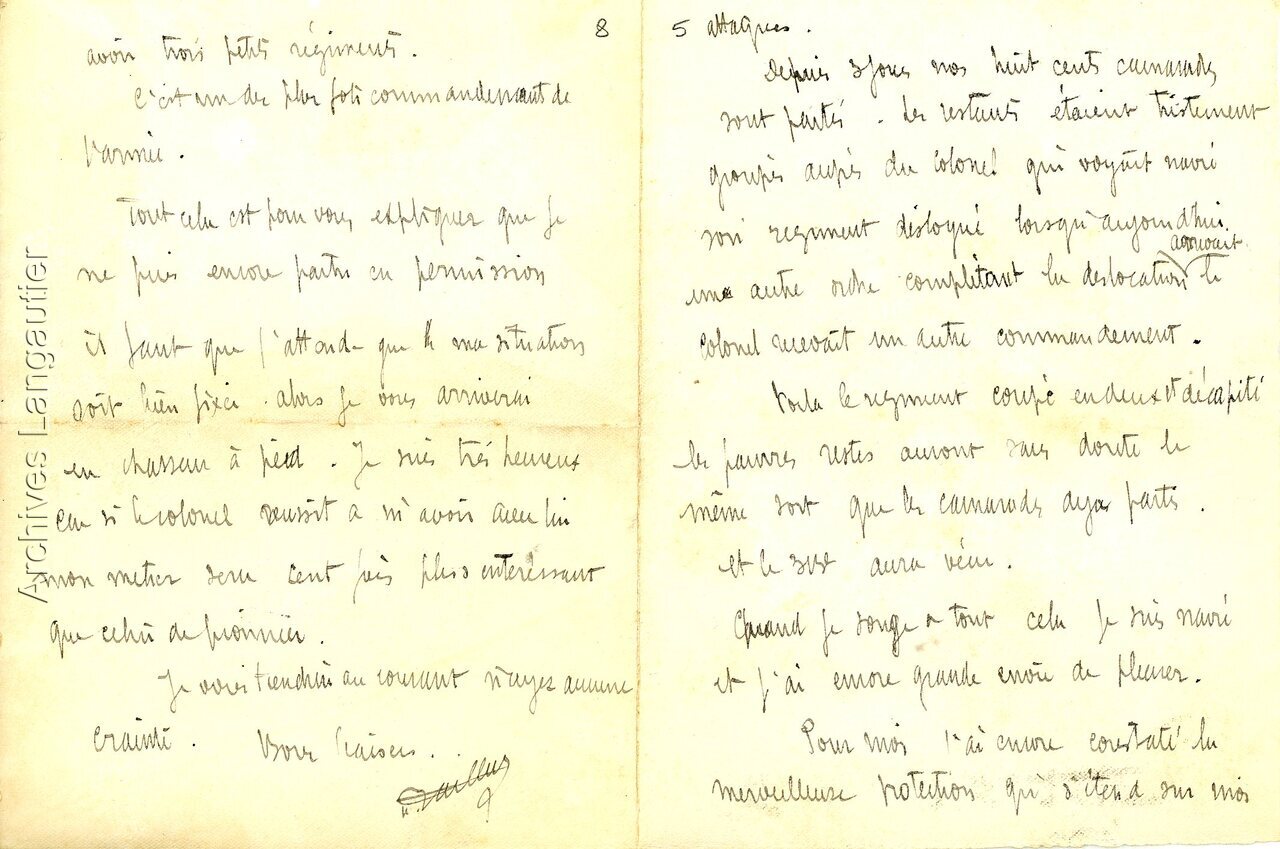 8
avoir trois petits régiments.
C'est un des plus forts commandement de
l'armée.
Tout cela est pour vous expliquer que je
ne puis encore partir en permission
il faut que j'attende que ma situation
soit bien fixée. alors je vous arriverai
en chasseur à pied. Je suis très heureux
car si le colonel reussit a m'avoir avec lui
mon metier sera cent fois plus interessant
que celui de pionnier.
Je vous tiendrai au courant n'ayez aucune
crainte. Bons baisers.
5 attaques.
Depuis 3 jours nos huit cents camarades
sont partis. Les restants étaient tristement
groupés auprès du Colonel qui voyait navré
son regiment disloqué lorsqu'aujourd'hui
arrivait
une autre ordre complétant la dislocation le
colonel recevait un autre commandement.
Voila le regiment coupé en deux et décapité
les pauvres restes auront sans doute le
même sort que les camarades deja partis.
et le aura vécu.
Quand je songe a tout cela je suis navré
et j'ai encore grande envie de pleurer.
Pour moi j'ai encore constaté la
merveilleuse protection qui s'étend sur moi
Archives Langautier